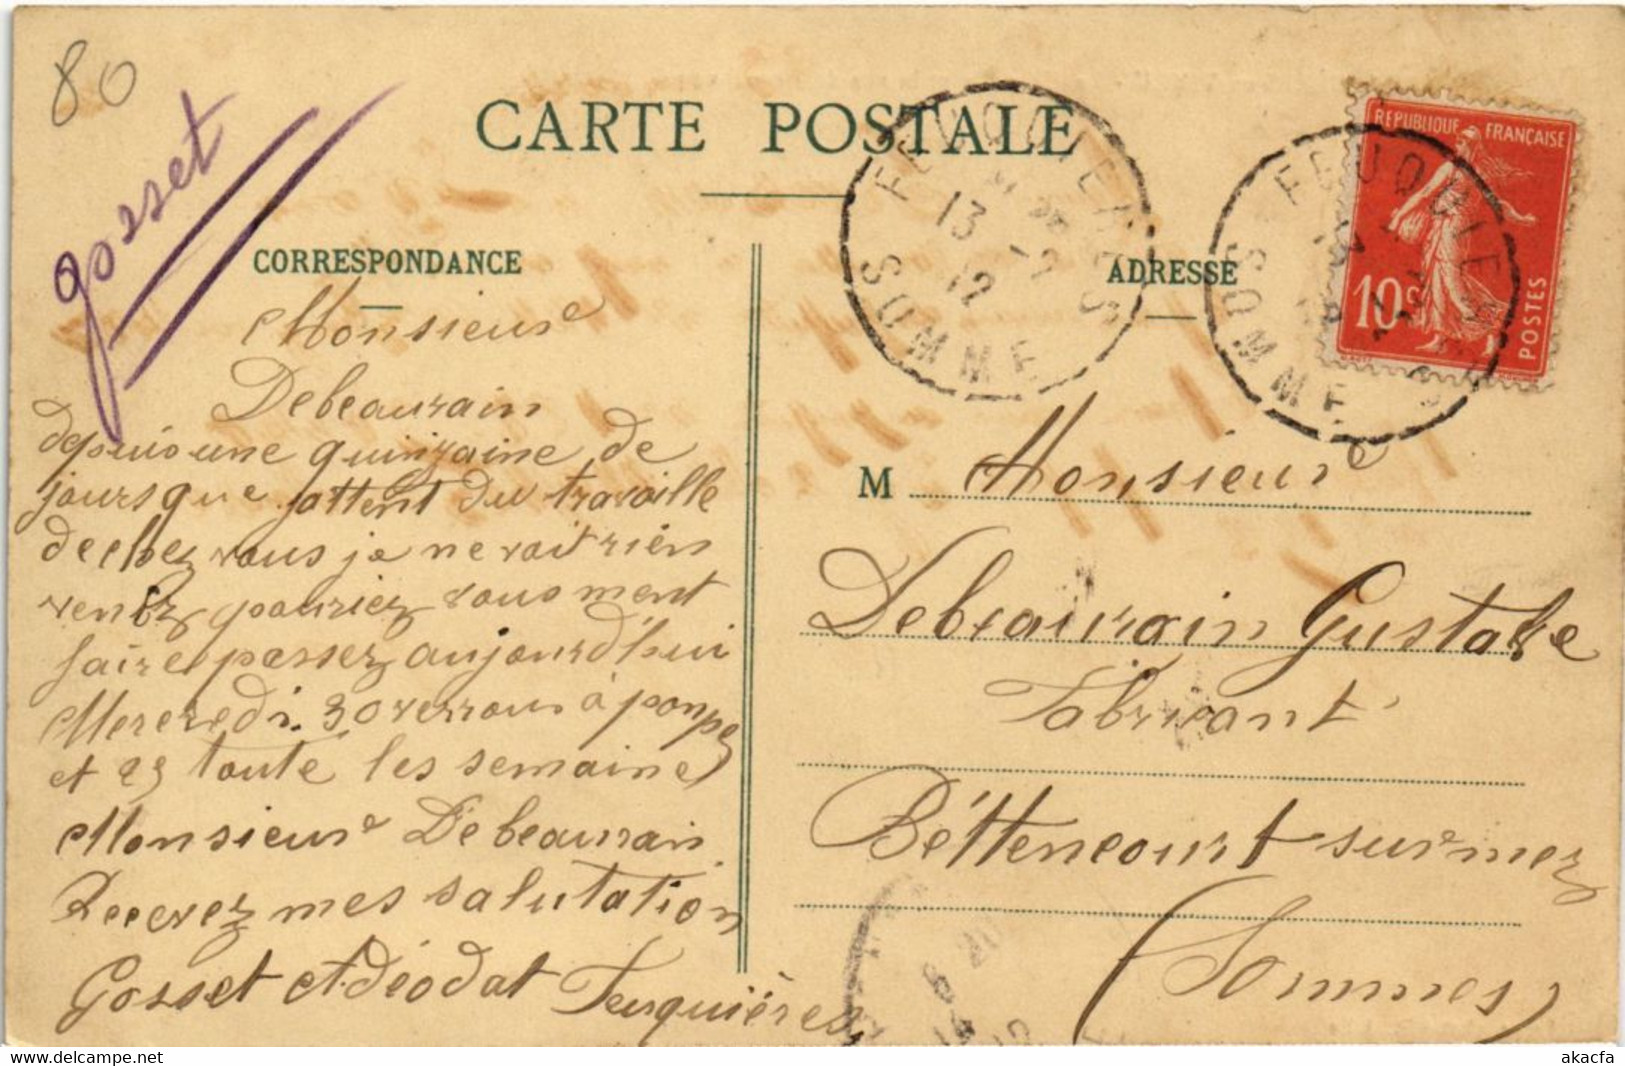 80
Gosset
CARTE POSTALE
CORRESPONDANCE
ADRESSE
FEUQUIERES
13 - 2
12
SOMME
FEUQUIE
SOMME
REPUBLIQUE FRANÇAISE
10c
POSTES
Monsieur
Debeaurain
depuis une quinzaine de
jours que jattent du travaille
de chez vous je ne voit rien
venez pouriez vous ment
faire passez aujourd'hui
Mercredi. 30 verrous à pompe
et 29 toute les semaine
Monsieur Debeaurain
Recevez mes salutation
Gosset Adéodat Feuquières
M Monsieur
Debeaurain Gustave
Fabricant
Béttencourt sur mer
(Sommes)
akacfa